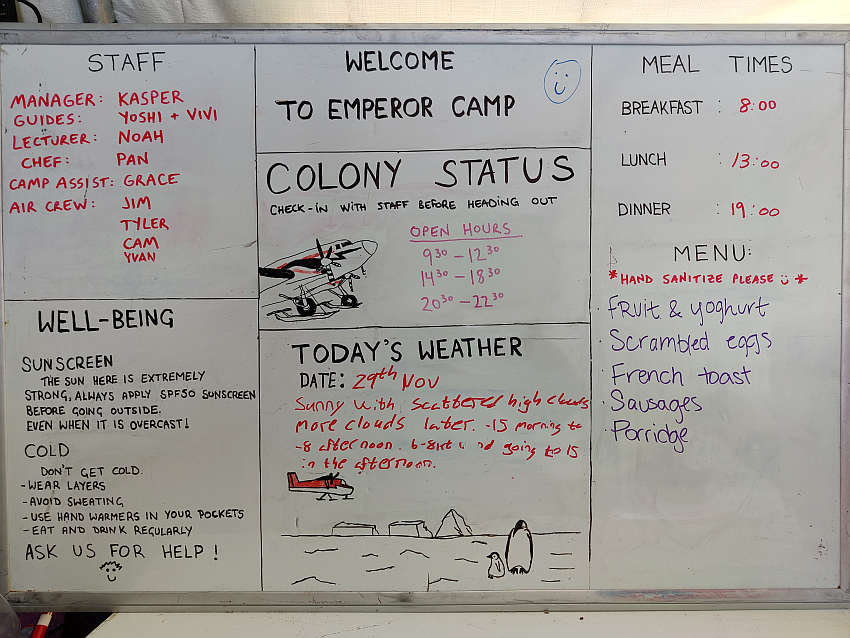 STAFF
MANAGER: KASPER
GUIDES: YOSHI + VIVI
LECTURER: NOAH
CHEF: PAN
CAMP ASSIST: GRACE
AIR CREW: JIM
TYLER
CAM
YVAN
WELL-BEING
SUNSCREEN
THE SUN HERE IS EXTREMELY
STRONG, ALWAYS APPLY SPF50 SUNSCREEN
BEFORE GOING OUTSIDE.
EVEN WHEN IT IS OVERCAST!
COLD
DON'T GET COLD.
- WEAR LAYERS
- AVOID SWEATING
- USE HAND WARMERS IN YOUR POCKETS
- EAT AND DRINK REGULARLY
ASK US FOR HELP!
WELCOME
TO EMPEROR CAMP
COLONY STATUS
CHECK-IN WITH STAFF BEFORE HEADING OUT
OPEN HOURS
9³⁰ – 12³⁰
14³⁰ – 18³⁰
20³⁰ – 22³⁰
TODAY'S WEATHER
DATE: 29th Nov
Sunny with scattered high clouds
more clouds later. -15 morning to
-8 afternoon. 6-8kt wind going to 15
in the afternoon.
MEAL TIMES
BREAKFAST : 8:00
LUNCH : 13:00
DINNER : 19:00
MENU:
*HAND SANITIZE PLEASE *
· Fruit & yoghurt
· Scrambled eggs
· French toast
· Sausages
· Porridge